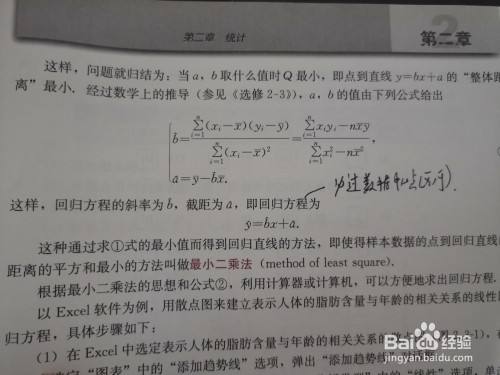 第二章 统计
第二章
这样，问题就归结为：当a，b取什么值时Q最小，即点到直线y=bx+a的“整体距
离”最小．经过数学上的推导（参见《选修2-3》），a，b的值由下列公式给出
b̂=∑ⁿᵢ₌₁(xᵢ-x̄)(yᵢ-ȳ)/∑ⁿᵢ₌₁(xᵢ-x̄)²=∑ⁿᵢ₌₁xᵢyᵢ-nx̄ȳ/∑ⁿᵢ₌₁xᵢ²-nx̄²,
a=ȳ-b̂x̄.
这样，回归方程的斜率为b̂，截距为a，即回归方程为
ŷ=bx+a.
这种通过求①式的最小值而得到回归直线的方法，即使得样本数据的点到回归直线
距离的平方和最小的方法叫做最小二乘法（method of least square）.
根据最小二乘法的思想和公式②，利用计算器或计算机，可以方便地求出回归方程.
以Excel软件为例，用散点图来建立表示人体的脂肪含量与年龄的相关关系的线性
归方程，具体步骤如下：
（1）在Excel中选定表示人体的脂肪含量与年龄的相关关系的散点图
“图表”中的“添加趋势线”选项，弹出“添加趋势线”对话框
Baidu经验
jingyan.baidu.com